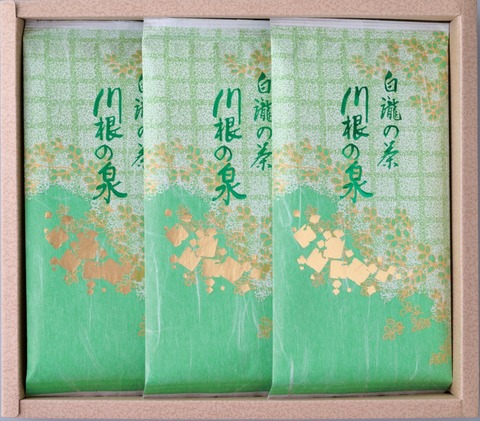 白瀧の茶
川根の泉
白瀧の茶
川根の泉
白瀧の茶
川根の泉